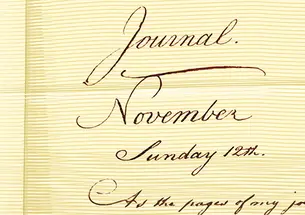 Journal.
November
Sunday 12th.
As the pages of my jo